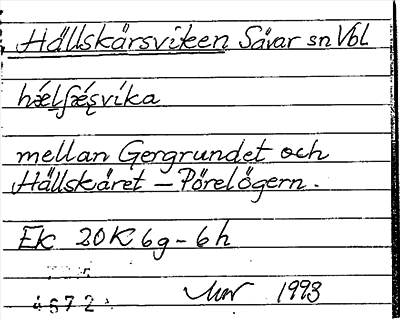 Hällskärsviken Sävar sn Vbl
mellan Gergrundet och
Hällskäret – Pörelögern.
Ek 20K 6g – 6h
4672
1993